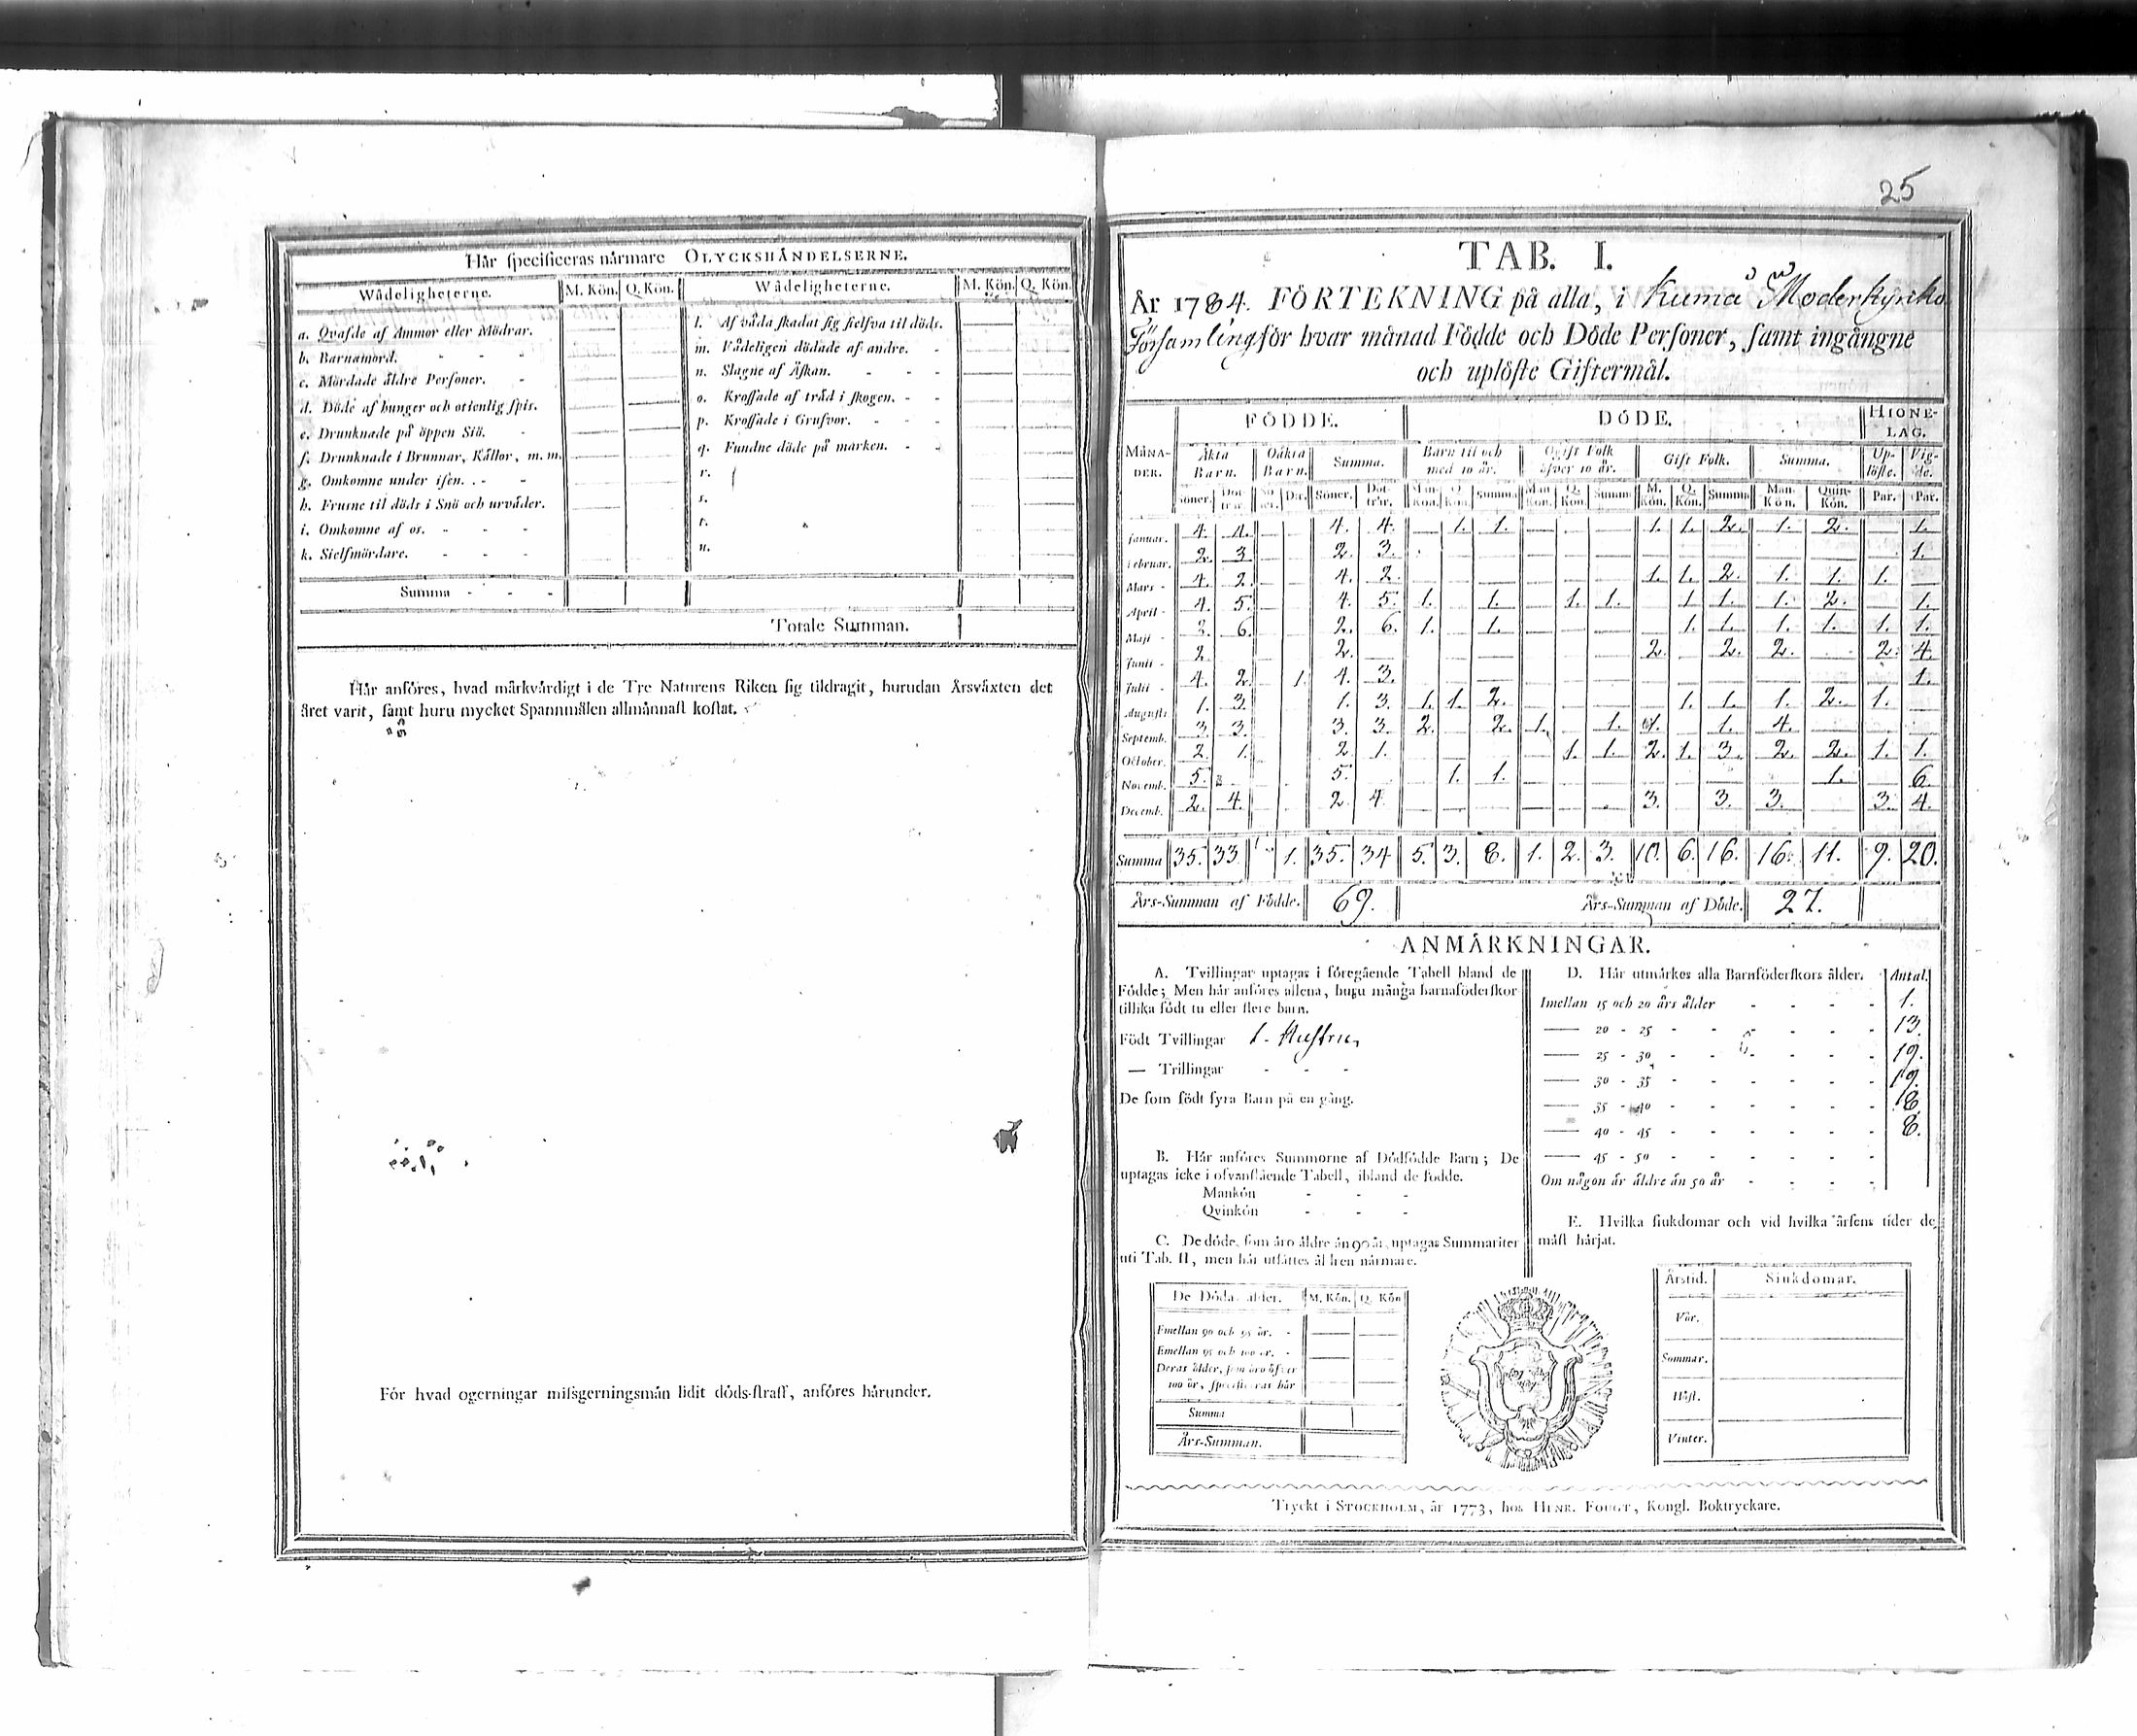 Här specificeras närmare OLYCKSHÄNDELSERNE.
Wådeligheterne. M. Kön. Q. Kön. Wådeligheterne. M. Kön. Q. Kön.
a. Qvafde af Ammor eller Mödrar.
b. Barnamord.
c. Mördade äldre Personer.
d. Döde af hunger och otienlig spis.
e. Drunknade på öppen Siö.
f. Drunknade i Brunnar, Källor, m. m.
g. Omkomne under isen.
h. Frusne til döds i Snö och urväder.
i. Omkomne af os.
k. Sielfmördare.
l. Af våda skadat sig sielfva til döds.
m. Vådeligen dödade af andre.
n. Slagne af Åskan.
o. Krossade af träd i skogen.
p. Krossade i Grufvor.
q. Fundne döde på marken.
r.
s.
t.
u.
Summa
Totale Summan.
Här anföres, hvad märkvärdigt i de Tre Naturens Riken sig tildragit, hurudan Årsväxten det
året varit, samt huru mycket Spannmålen allmännast kostat.
För hvad ogerningar missgerningsmän lidit döds-straff, anföres härunder.
25
TAB. I.
År 1784. FÖRTEKNING på alla, i Kumå Moderkyrko
Församling för hvar månad Födde och Döde Personer, samt ingångne
och uplöste Giftermål.
FÖDDE. DÖDE. HIONE-LAG.
MÅNADER. Äkta Barn. Oäkta Barn. Summa. Barn til och med 10 år. Ogift Folk öfver 10 år. Gift Folk. Summa. Uplöste. Vigde.
Söner. Döttrar. Sö ner. Dr. Söner. Döttrar. Man Kön. Q. Kön. Summa Man Kön. Q. Kön. Summ. M. Kön. Q. Kön. Summa Man-Kön. Quin-Kön. Par. Par.
Januar. 4. 4. — — 4. 4. — 1. 1. — — — 1. 1. 2. 1. 2. — 1.
Februar. 2. 3. — — 2. 3. 1.
Mars 4. 2. — — 4. 2. — — — — — — 1. 1. 2. 1. 1. 1. —
April 4. 5. — — 4. 5. 1. 1. — 1. 1. 1. 1. 1. 2. — 1.
Maji 2. 6. 2. 6. 1. 1. — — — 1. 1. 1. 1. 1. 1.
Junii 2 2. — — — — — — — 2. — 2. 2. 2. 4.
Julii 4. 2. 1. 4. 3. — — — — — — — — — — — — 1.
Augusti. 1. 3. 1. 3. 1. 1. 2. — — — 1. 1. 1. 2. 1. —
Septemb. 3. 3. 3. 3. 2. 2. 1. 1. 1. 1. 4. — — —
October. 2. 1. 2 1. — — — — 1. 1. 2. 1. 3. 2. 2. 1. 1.
Novemb. 5. 5. 1. 1. — — — — — — — 1. — 6.
Decemb. 2. 4. 2. 4. — — — — — — 3. 3. 3. 3. 4.
Summa 35. 33. 1. 35. 34 5. 3. 8. 1. 2. 3. 10. 6. 16. 16. 11. 9. 20.
Års-Summan af Födde. 69. Års-Summan af Döde. 27.
ANMÄRKNINGAR.
A. Tvillingar uptagas i föregående Tabell bland de
Födde; Men här anföres allena, huru många barnaföderskor
tillika födt tu eller flere barn.
Födt Tvillingar 1. Hustru
— Trillingar
De som födt fyra Barn på en gång.
B. Här anföres Summorne af Dödfödde Barn; De
uptagas icke i ofvanstående Tabell, ibland de födde.
Mankön
Qvinkön
C. De döde, som äro äldre än 90 år, uptagas Summariter
uti Tab. II, men här utsättes åldren närmare.
De Döda ålder. M. Kön. Q. Kön
Emellan 90 och 95 år.
Emellan 95 och 100 år.
Deras ålder, som äro öfver
100 år, specificeras här
Summa
Års-Summan.
D. Här utmärkes alla Barnföderskors ålder. Antal.
Imellan 15 och 20 års ålder 1.
— 20 - 25 13.
— 25 - 30 19.
— 30 - 35 19.
— 35 - 40 8.
— 40 - 45 8.
— 45 - 50
Om någon är äldre än 50 år
E. Hvilka siukdomar och vid hvilka årsens tider de
mäst härjat.
Årstid. Siukdomar.
Vår.
Sommar.
Höst.
Vinter.
Tryckt i STOCKHOLM, år 1773, hos HENR. FOUGT, Kongl. Boktryckare.